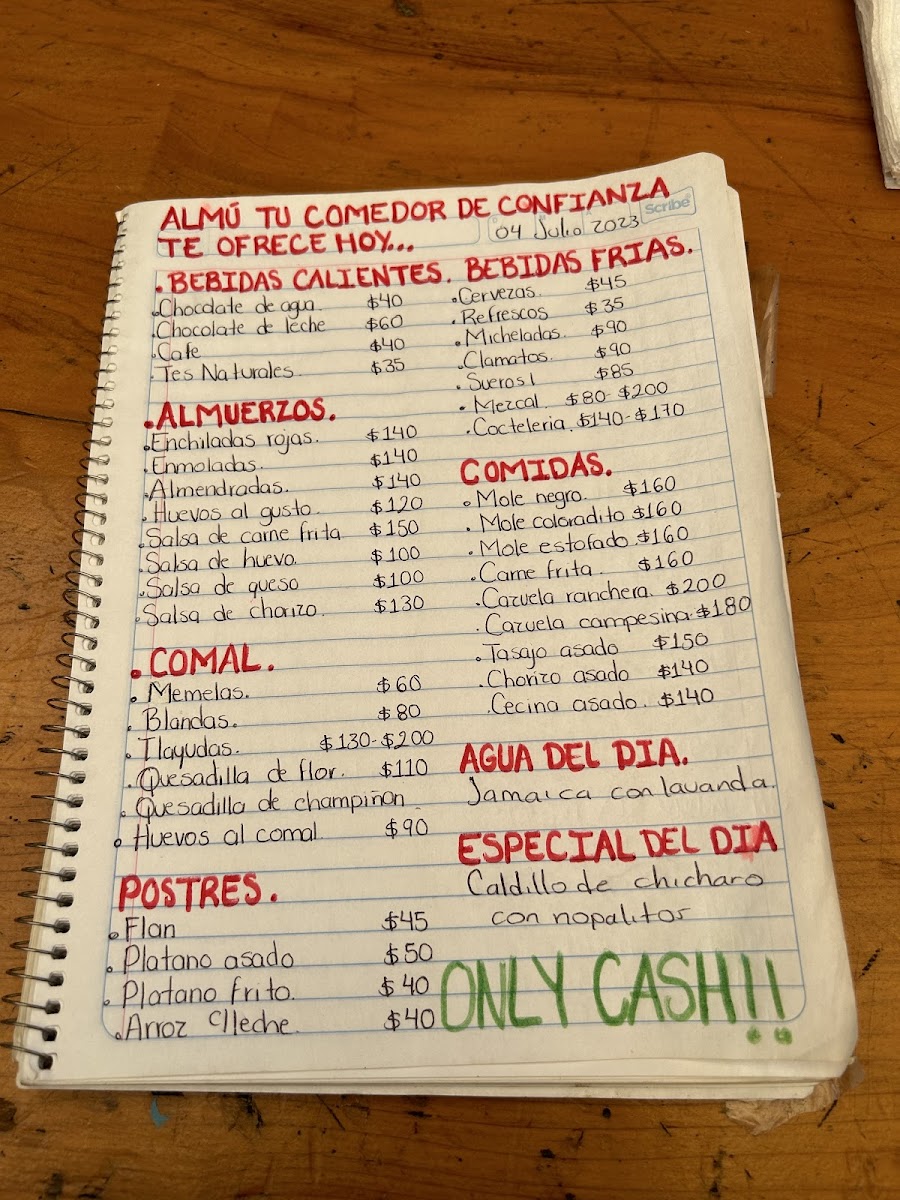 ALMÚ TU COMEDOR DE CONFIANZA
TE OFRECE HOY...
Scribe
04 Julio 2023
. BEBIDAS CALIENTES.
. Chocolate de agua. $40
. Chocolate de leche $60
. Cafe $40
. Tes Naturales. $35
. ALMUERZOS.
. Enchiladas rojas. $140
. Enmoladas. $140
. Almendradas. $140
. Huevos al gusto. $120
. Salsa de carne frita $150
. Salsa de huevo. $100
. Salsa de queso $100
. Salsa de chorizo. $130
. COMAL.
. Memelas. $60
. Blandas. $80
. Tlayudas. $130-$200
. Quesadilla de flor. $110
. Quesadilla de champiñon.
. Huevos al comal. $90
POSTRES.
. Flan $45
. Platano asado $50
. Platano frito. $40
. Arroz c/leche. $40
BEBIDAS FRIAS.
. Cervezas. $45
. Refrescos $35
. Micheladas. $90
. Clamatos. $90
. Sueros $85
. Mezcal. $80-$200
. Cocteleria. $140-$170
COMIDAS.
. Mole negro. $160
. Mole coloradito $160
. Mole estofado. $160
. Carne frita. $160
. Cazuela ranchera. $200
. Cazuela campesina. $180
. Tasajo asado $150
. Chorizo asado $140
. Cecina asado. $140
AGUA DEL DIA.
Jamaica con lavanda.
ESPECIAL DEL DIA
Caldillo de chicharo
con nopalitos
ONLY CASH!!